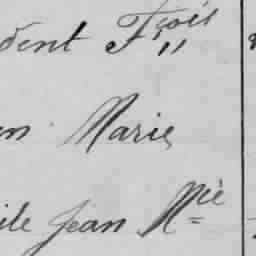 dent Fçois
en Marie
ile Jean Mie